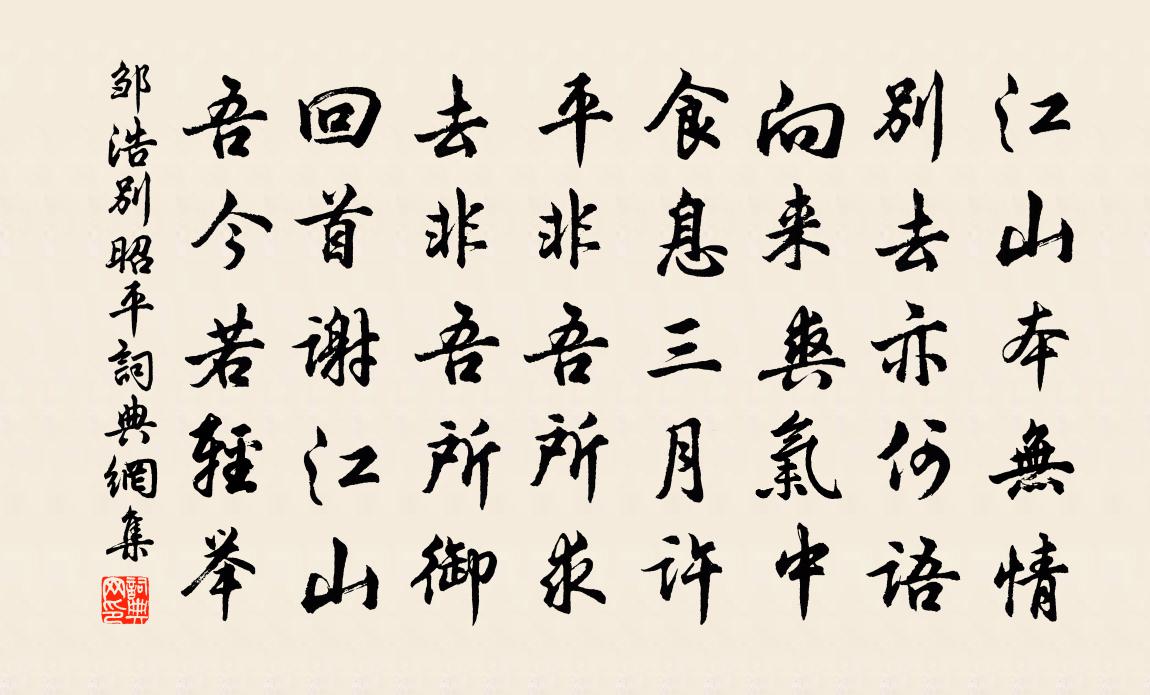 江山本無情
别去亦何語
向来爽氣中
食息三月許
平非吾所求
去非吾所御
回首謝江山
吾今若輕举
邹浩别昭平詞典網集
詞典网印